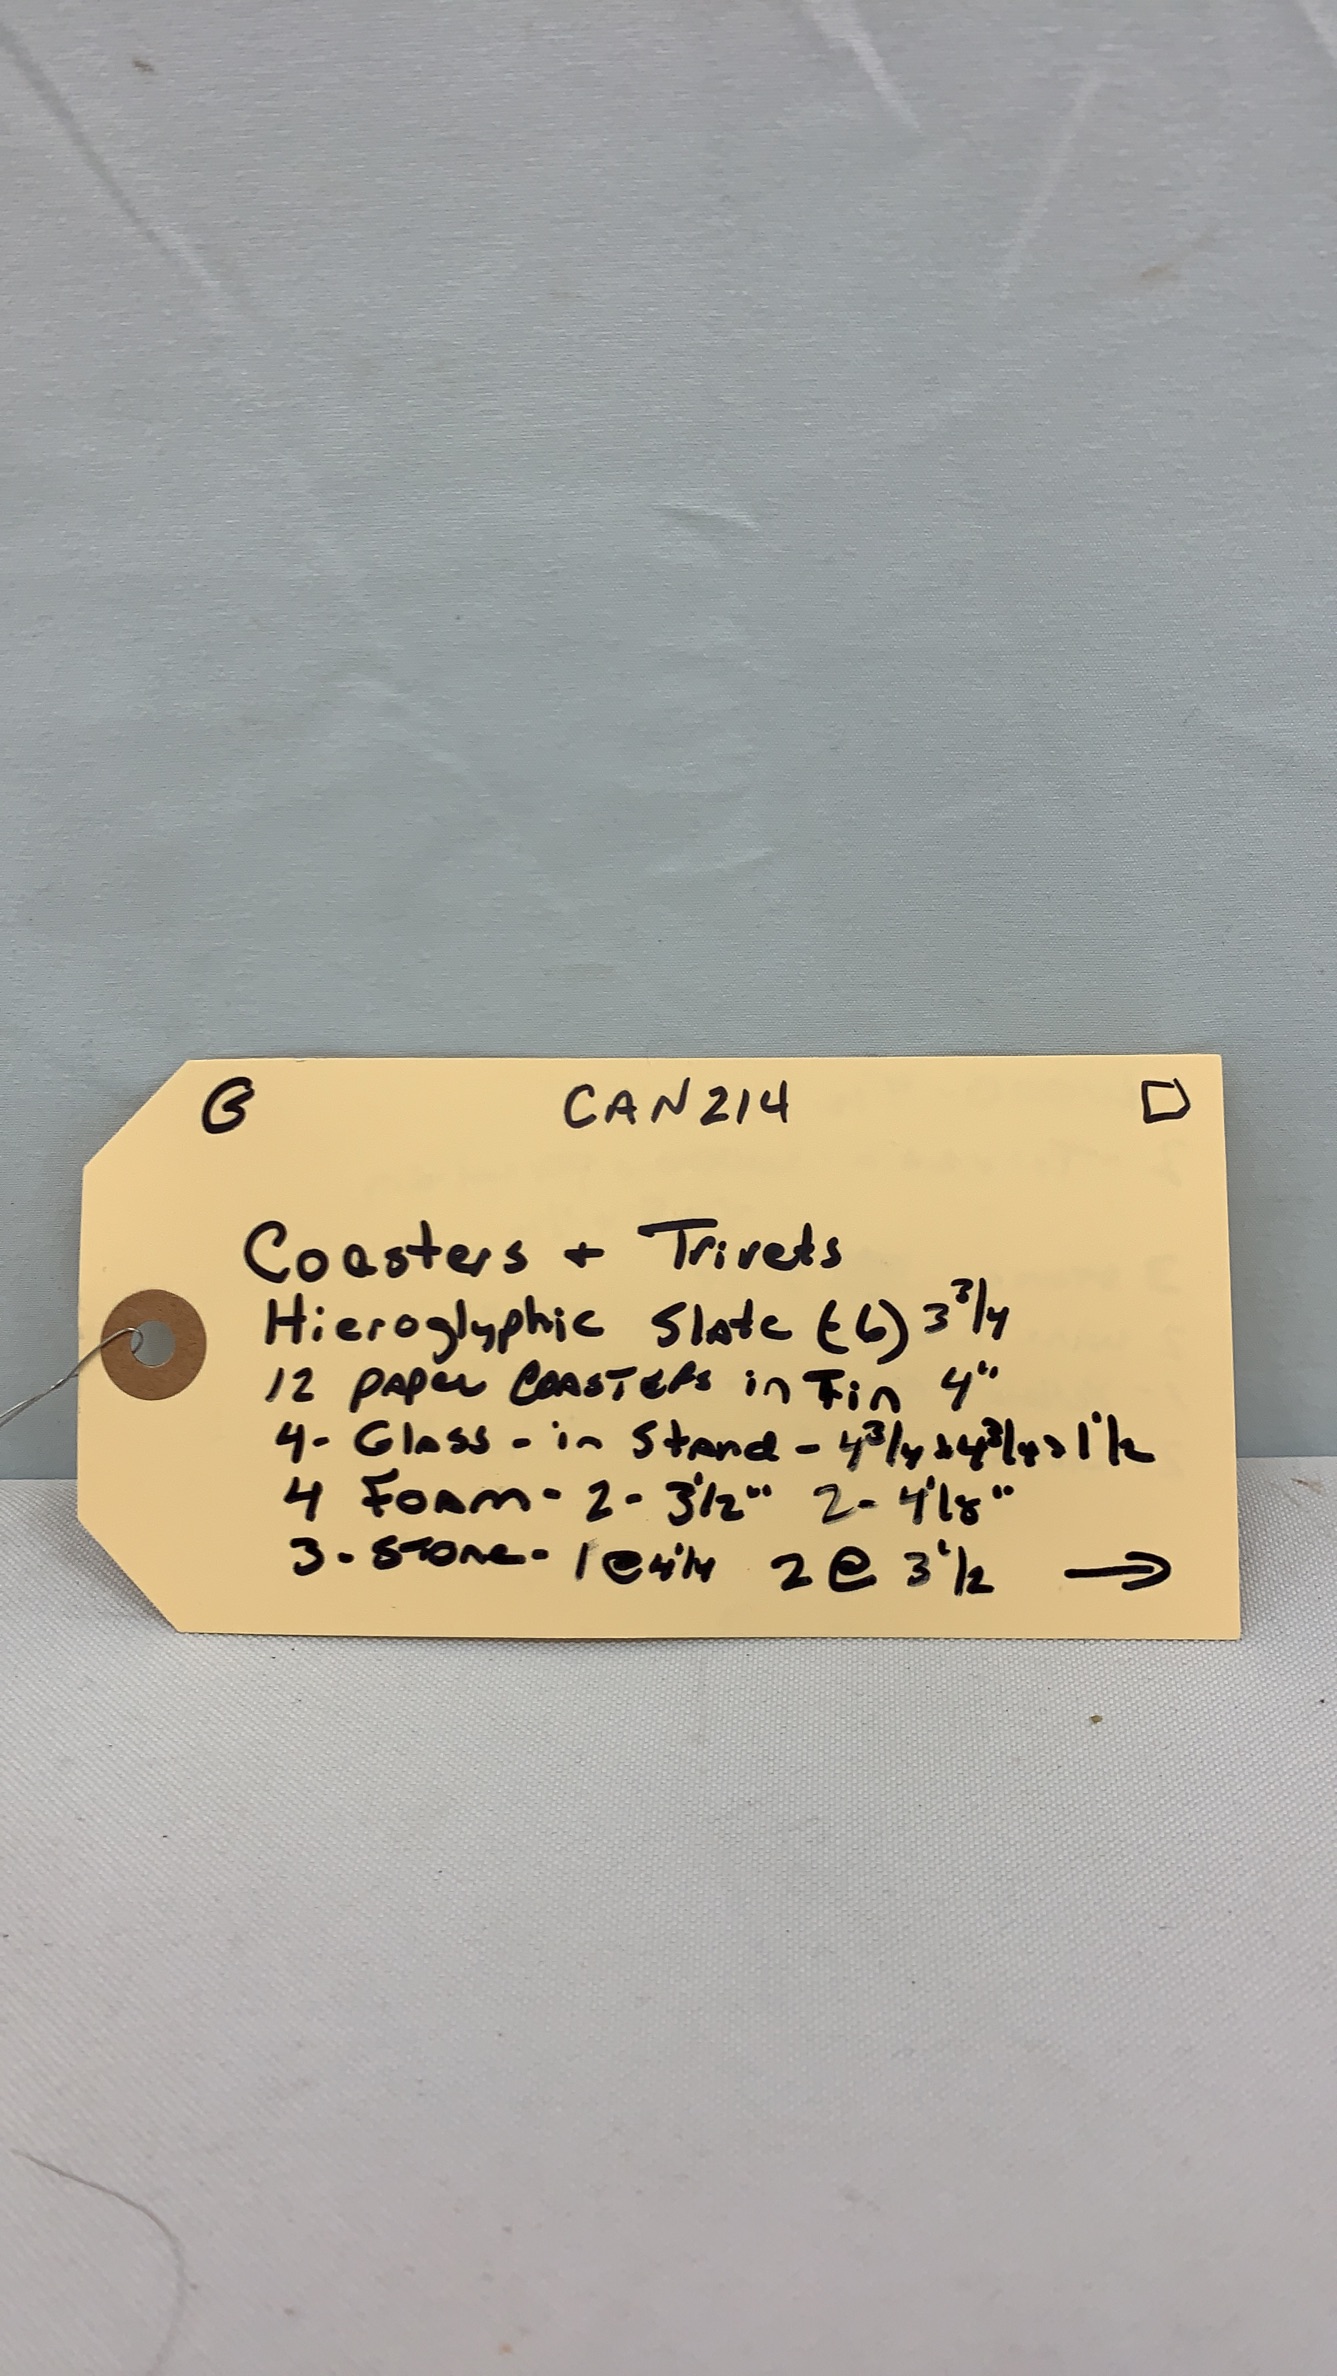 G CAN214 D
Coasters + Trivets
Hieroglyphic Slate (6) 3 3/4
12 PAPER COASTERS in Tin 4"
4- Glass - in Stand - 4 3/4 x 4 3/4 x 1 1/2
4 FOAM - 2 - 3 1/2" 2 - 4 1/8"
3 - STONE - 1 @ 4 1/4 2 @ 3 1/2 →